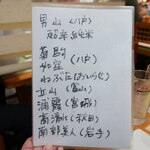 男山(八戸)
超辛純米
菊駒(八戸)
如空
ねぶた(おいらせ)
立山(富山)
浦霞(宮城)
高清水(秋田)
南部美人(岩手)